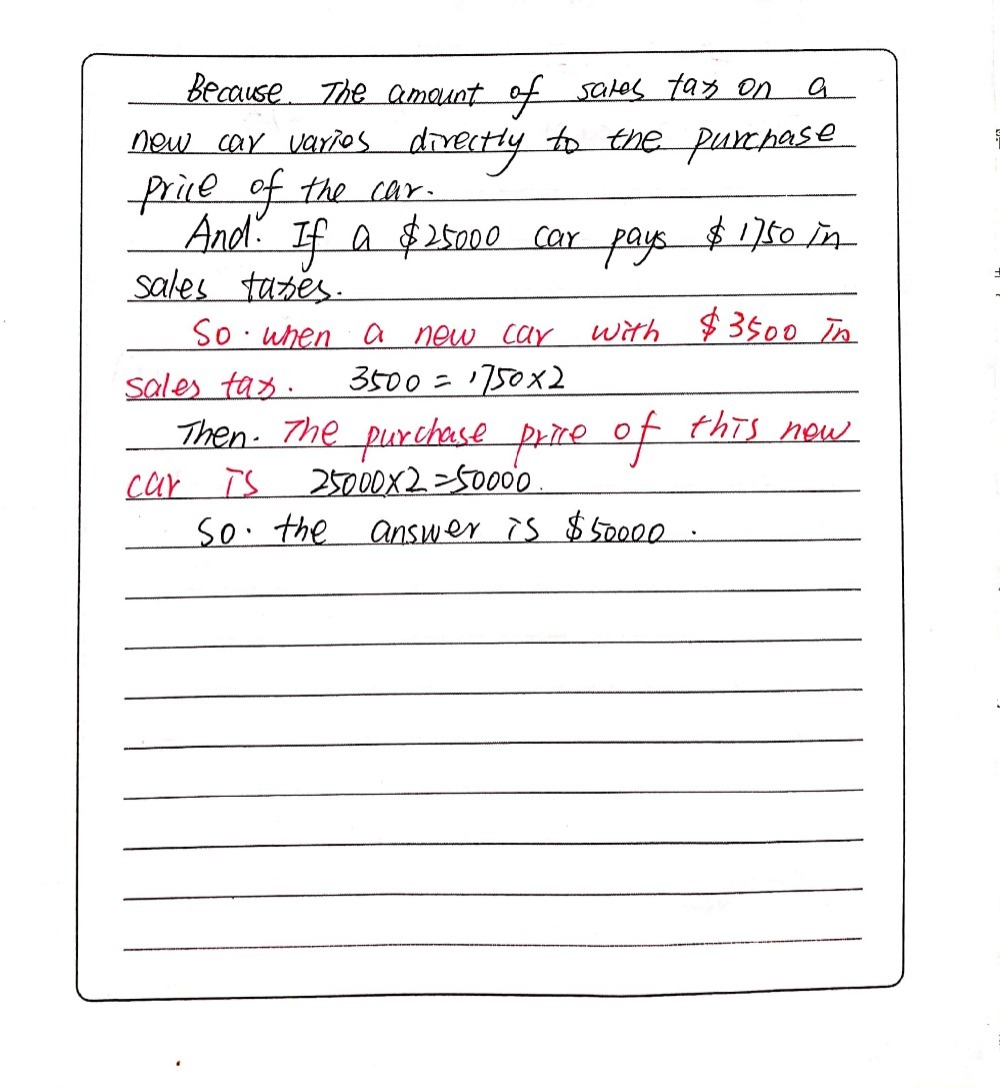 Because. The amount of sales tax on a
new car varies directly to the purchase
price of the car.
And. If a $25000 car pays $1750 in
sales taxes.
So. when a new car with $3500 in
sales tax. 3500 = 1750×2
Then. The purchase price of this new
car is 25000×2=50000.
So. the answer is $50000.